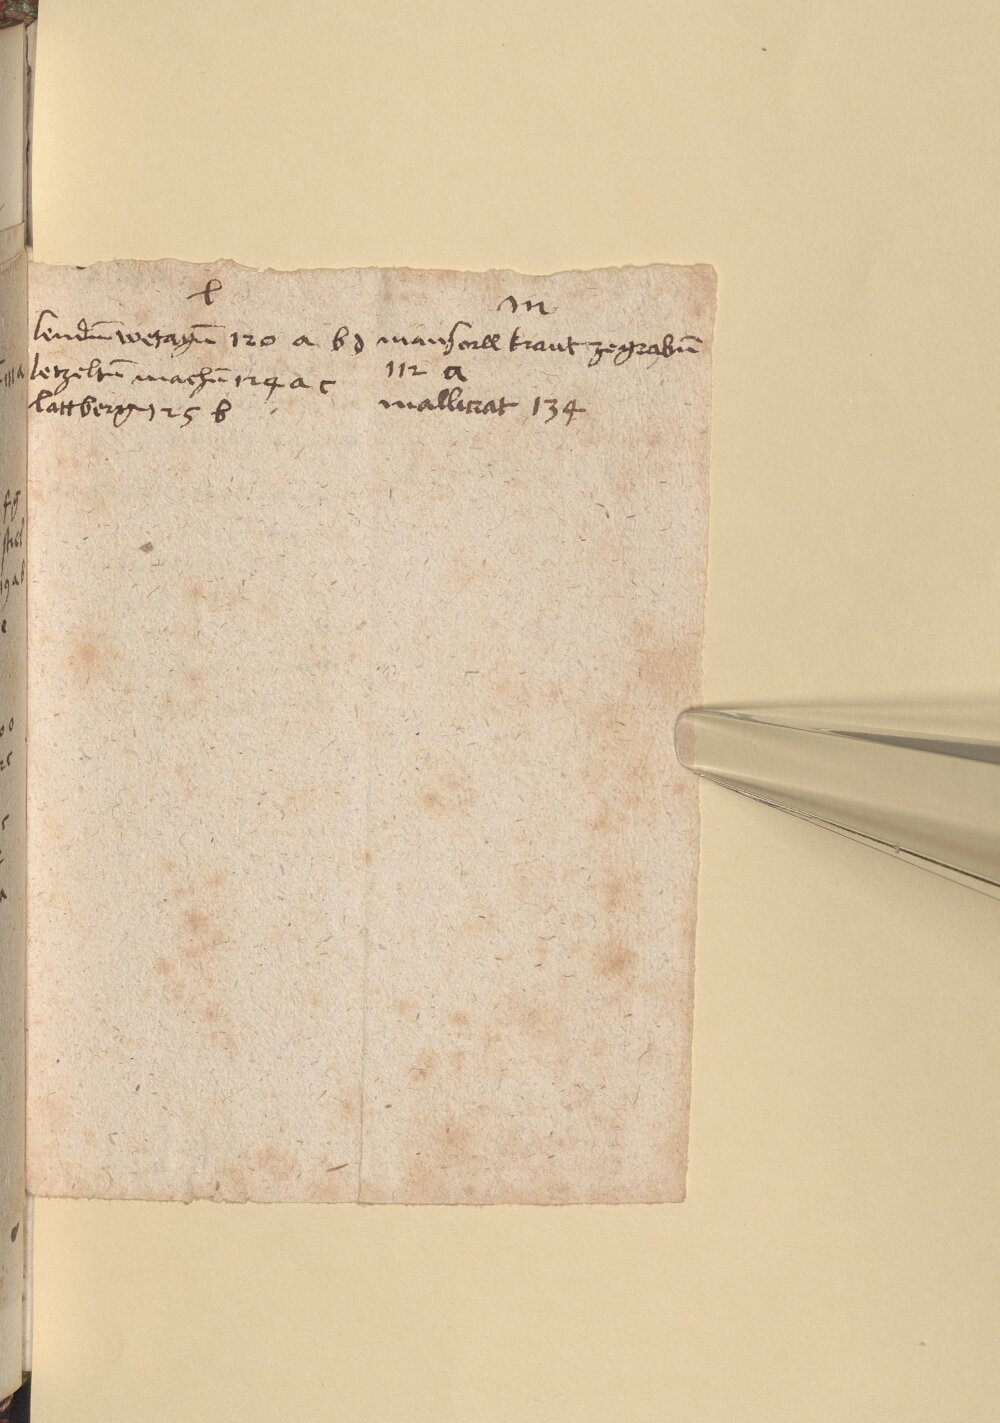 l
lendūn wetagūn 120 a b d
letzeltūn machūn 124 a c
lattberg 125 b
m
mansorll kraut zegrabūn
112 a
mallitrat 134